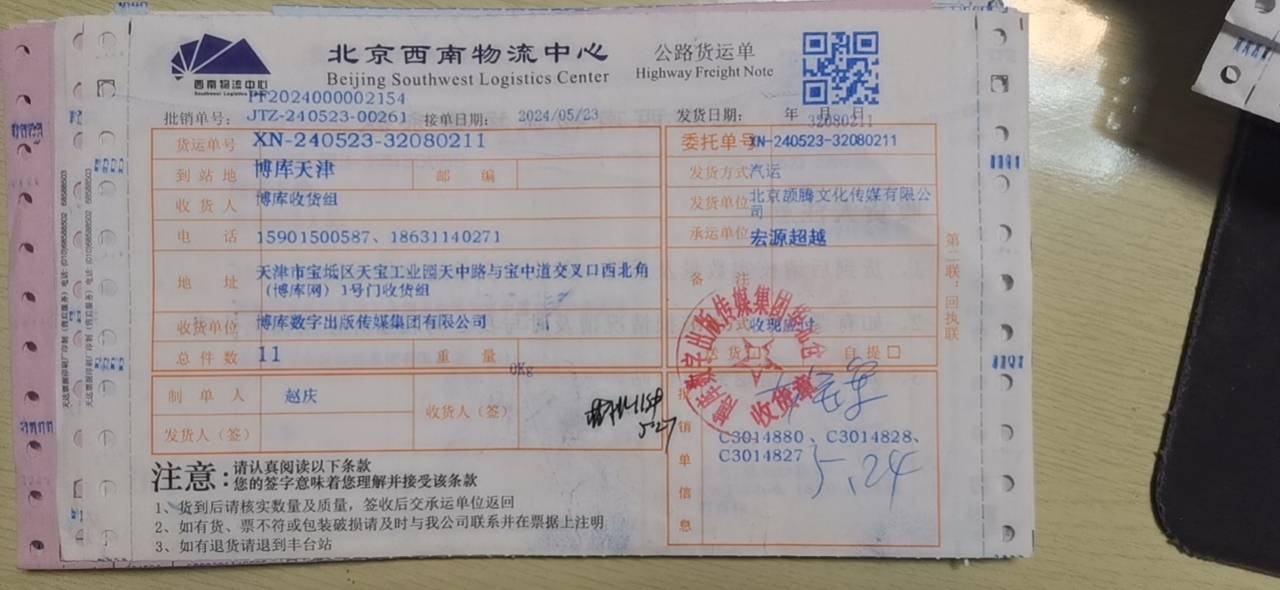 北京西南物流中心
Beijing Southwest Logistics Center
公路货运单
Highway Freight Note
西南物流中心
Southwest Logistics
PF2024000002154
批销单号: JTZ-240523-00261 接单日期: 2024/05/23 发货日期: 年 月 日
32080211
货运单号 XN-240523-32080211 委托单号 XN-240523-32080211
到站地 博库天津 邮编 发货方式 汽运
收货人 博库收货组 发货单位 北京颉腾文化传媒有限公
司
电话 15901500587、18631140271 承运单位 宏源超越
地址 天津市宝坻区天宝工业园天中路与宝中道交叉口西北角
(博库网) 1号门收货组
备注
收货单位 博库数字出版传媒集团有限公司 式 收现
总件数 11 重量 0Kg 送货□ 自提□
制单人 赵庆 收货人(签)
发货人(签)
5-27
批销单信息
C3014880、C3014828、
C3014827
5.24
收货章
第二联:回执联
注意: 请认真阅读以下条款
您的签字意味着您理解并接受该条款
1、货到后请核实数量及质量，签收后交承运单位返回
2、如有货、票不符或包装破损请及时与我公司联系并在票据上注明
3、如有退货请退到丰台站